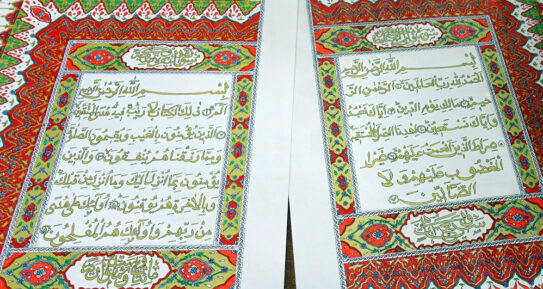 بسم الله الرحمن الرحيم
الحمد لله رب العالمين الرحمن الر
حيم مالك يوم الدين إياك نعبد
وإياك نستعين اهدنا الصراط المستقيم
صراط الذين أنعمت عليهم غير
المغضوب عليهم ولا
الضالين
بسم الله الرحمن الرحيم
الم ذلك الكتاب لا ريب فيه هدى للمتقين
الذين يؤمنون بالغيب ويقيمون الصلوة
ومما رزقناهم ينفقون والذين
يؤمنون بما أنزل إليك وما أنزل من قبلك
وبالآخرة هم يوقنون أولئك على هدى
من ربهم وأولئك هم المفلحون